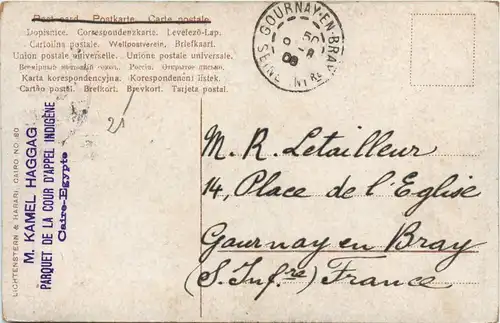 Post-card Postkarte Carte postale
Dopisnice. Correspondenzkarte. Levelező-Lap.
Cartolina postale. Weltpostverein. Briefkaart.
Union postale universelle. Unione postale universale.
Karta korespondencyjna. Korespondenční lístek.
Cartão postal. Brefkort. Brevkort. Tarjeta postal.
21
GOURNAY-EN-BRAY
SEINE INFRE
08
LICHTENSTERN & HARARI, CAIRO NO. 80
M. KAMEL HAGGAG
PARQUET DE LA COUR D'APPEL INDIGÈNE
Caire-Egypte
M. R. Letailleur
14, Place de l'Eglise
Gournay en Bray
(S. Inf.re) France